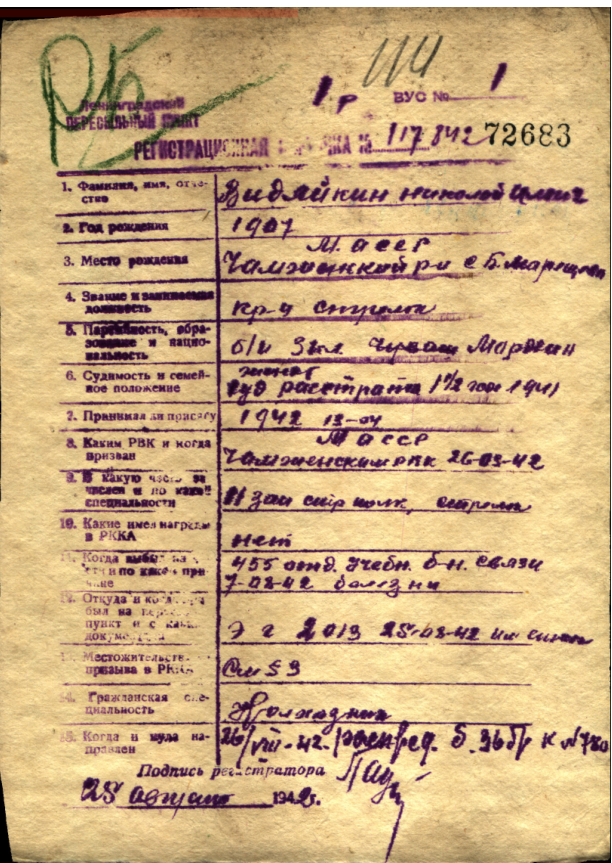 РБ
114
1 р ВУС № 1
Ленинградский
ПЕРЕСЫЛЬНЫЙ ПУНКТ
РЕГИСТРАЦИОННАЯ № 117842 72683
1. Фамилия, имя, отче-
ство Видяйкин николай
2. Год рождения 1907
М. АССР
3. Место рождения Чамзинский р-н с Б. Маресево
4. Звание и занимаемая
должность кр-ц стрелок
5. Партийность, обра-
зование и нацио-
нальность б/п 3 кл Мордвин
6. Судимость и семей-
ное положение женат
суд растрата 1 1/2 года 1941
7. Принимал ли присягу 1942 13-04
М АССР
8. Каким РВК и когда
призван Чамзенским рвк 26-03-42
9. В какую часть за
числен и по какой
специальности зап стр полк, стрелок
10. Какие имел награды
в РККА нет
11. Когда выбыл из
и по какой при-
чине 455 отд. Учебн. б-н. Связи
7-08-42 болезни
12. Откуда и когда
был на
пункт и с каким
э г 2013 25-08-42
13. Местожительств
призыва в РККА См § 3
14. Гражданская спе-
циальность
15. Когда и куда на-
правлен 26/VIII-42. распред. б. 36 бр к № 780
Подпись регистратора
25 август 1942г.